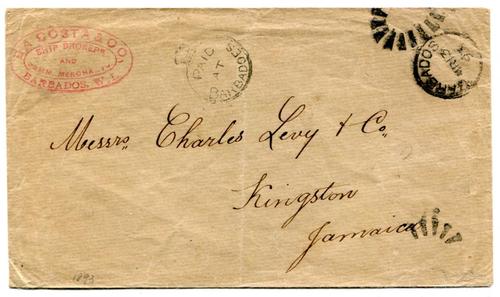 DA COSTA & CO.
SHIP BROKERS
AND
COMM. MERCHANTS
BARBADOS, W.I.
PAID
AT
BARBADOES
BARBADOS
Messrs. Charles Levy & Co.
Kingston
Jamaica
1893